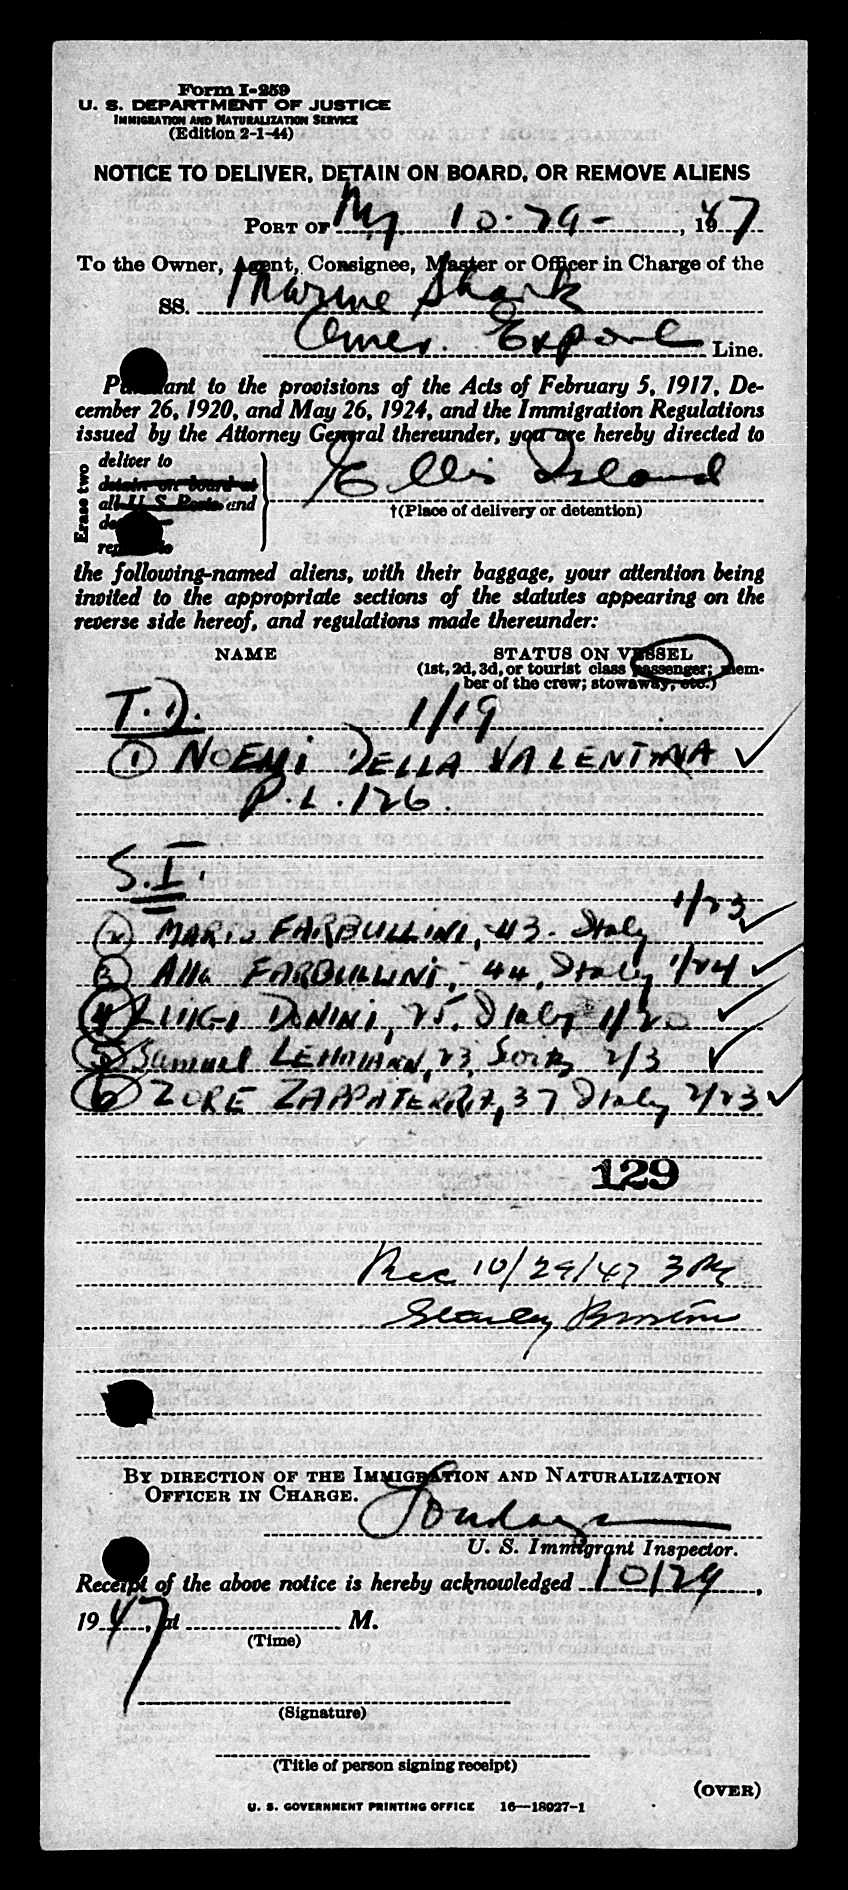 Form I-259
U. S. DEPARTMENT OF JUSTICE
IMMIGRATION AND NATURALIZATION SERVICE
(Edition 2-1-44)
NOTICE TO DELIVER, DETAIN ON BOARD, OR REMOVE ALIENS
PORT OF NY 10-29-, 1947
To the Owner, Agent, Consignee, Master or Officer in Charge of the
SS. Marine Shark
Amer. Export Line.
Pursuant to the provisions of the Acts of February 5, 1917, De-
cember 26, 1920, and May 26, 1924, and the Immigration Regulations
issued by the Attorney General thereunder, you are hereby directed to
Erase two
deliver to
detain on board at
all U S Ports and
Ellis Island
†(Place of delivery or detention)
the following-named aliens, with their baggage, your attention being
invited to the appropriate sections of the statutes appearing on the
reverse side hereof, and regulations made thereunder:
NAME STATUS ON VESSEL
(1st, 2d, 3d, or tourist class passenger; mem-
ber of the crew; stowaway, etc.)
T.D. 1/19
1 NOEMI DELLA VALENTINA ✓
P.L. 126.
S.I.
2 MARIO FARBULLINI, 43. Italy 1/23 ✓
3 Alla FARBULLINI, 44, Italy 1/24 ✓
4 LUIGI DONINI, 25. Italy 1/20 ✓
5 Samuel LEHMANN, 23, 2/3 ✓
6 ZORE ZAPPATERRA, 37 Italy 2/23 ✓
129
Rec 10/29/47 3 PM
Stanley
BY DIRECTION OF THE IMMIGRATION AND NATURALIZATION
OFFICER IN CHARGE.
U. S. Immigrant Inspector.
Receipt of the above notice is hereby acknowledged 10/29,
1947, at M.
(Time)
(Signature)
(Title of person signing receipt)
(OVER)
U. S. GOVERNMENT PRINTING OFFICE 16—18027-1